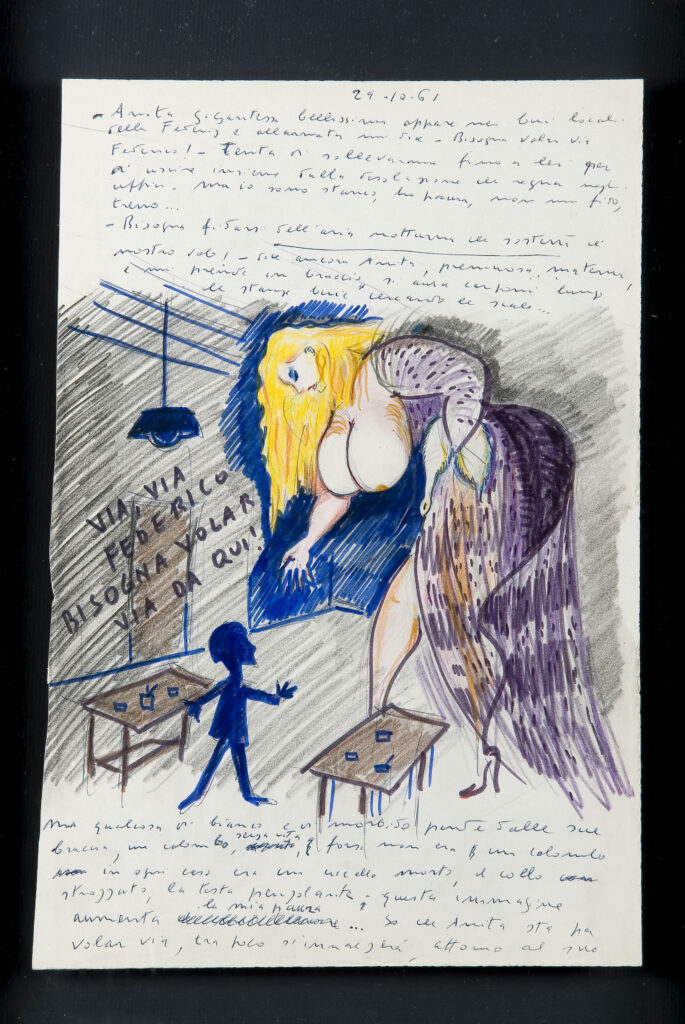 29-10-61
- Anita gigantessa bellissima appare nei bui locali
della Federiz e allarmata mi dice - Bisogna volar via
Federico! - Tenta di sollevarmi fino a lei per
uscire insieme dalla desolazione che regna negli
uffici. Ma io sono stanco, ho paura, non mi fido,
tremo...
- Bisogna fidarsi dell'aria notturna che sosterrà il
nostro volo! - dice ancora Anita, premurosa, materna,
e mi prende in braccio, si aura carponi lungo
le stanze buie cercando le scale...
VIA, VIA
FEDERICO
BISOGNA VOLAR
VIA DA QUI!
Ma qualcosa di bianco e di morbido pende dalle sue
braccia, un colombo, senza vita, forse non era un colombo
in ogni caso era un uccello morto, il collo
strozzato, la testa penzolante. questa immagine
aumenta la mia paura ... So che Anita sta per
volar via, tra poco s'innalzerà, attorno al suo